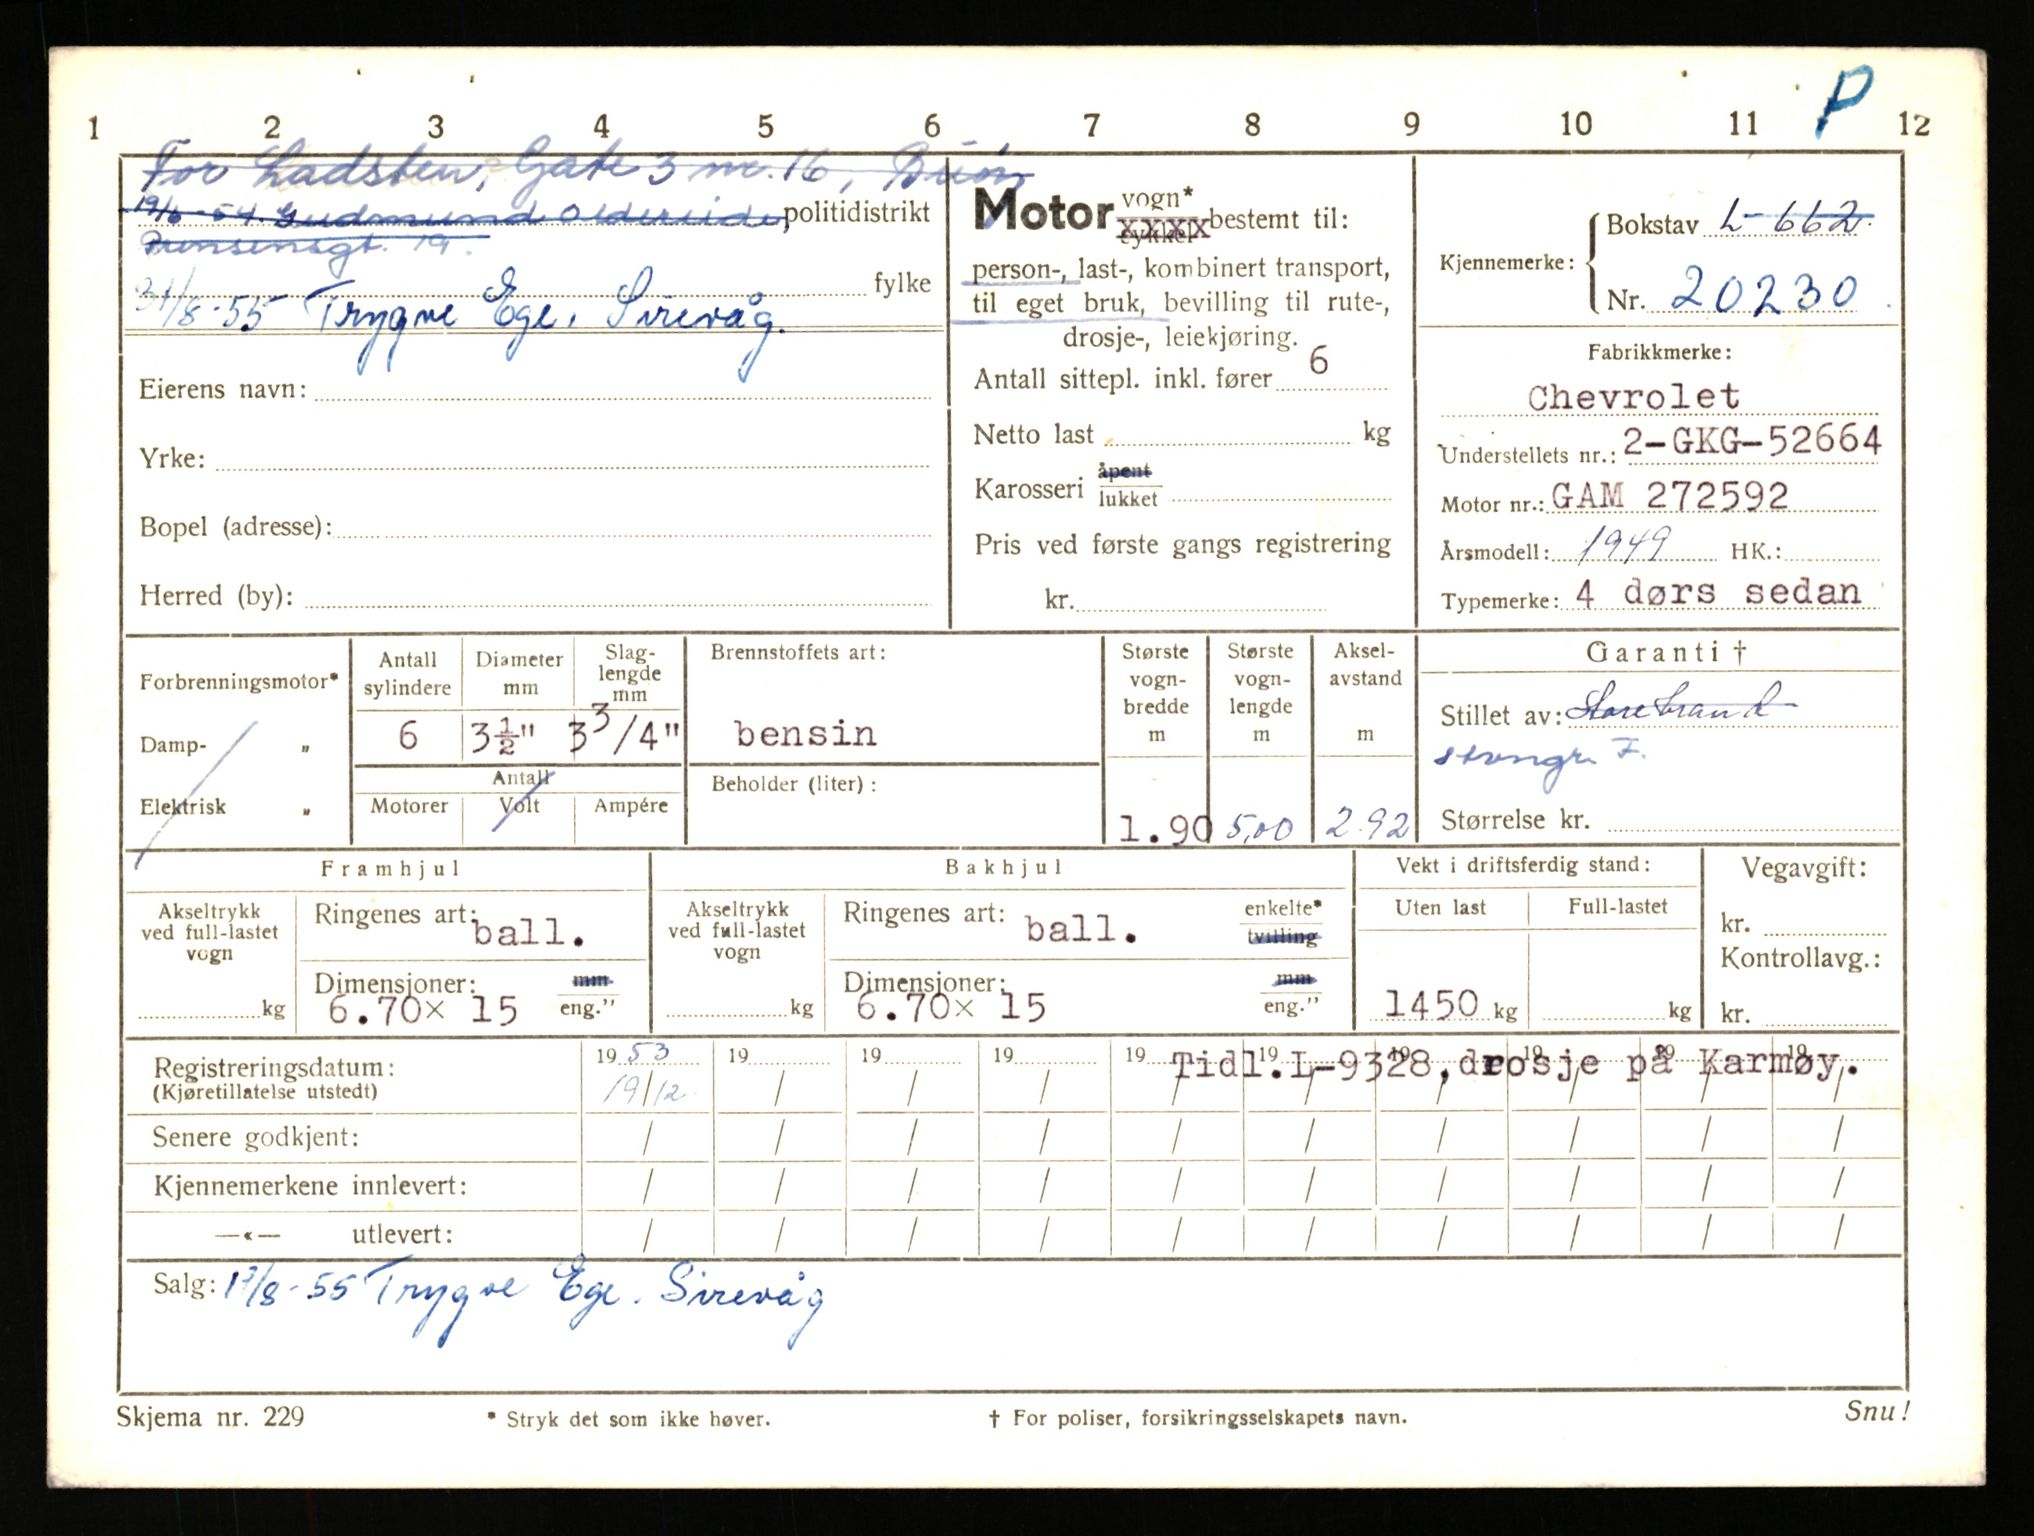 P
1 2 3 4 5 6 7 8 9 10 11 12
For Ladsten, Gate 3 nr. 16,
19/6-54 Gudmund politidistrikt
19.
fylke
31/8-55 Trygve Ege. Sirevåg.
Eierens navn:
Yrke:
Bopel (adresse):
Herred (by):
Motor vogn*
xxxx bestemt til:
person-, last-, kombinert transport,
til eget bruk, bevilling til rute-,
drosje-, leiekjøring.
Antall sittepl. inkl. fører 6
Netto last kg
Karosseri åpent
lukket
Pris ved første gangs registrering
kr.
Kjennemerke: Bokstav L-662
Nr. 20230
Fabrikkmerke:
Chevrolet
Understellets nr.: 2-GKG-52664
Motor nr.: GAM 272592
Årsmodell: 1949 HK.:
Typemerke: 4 dørs sedan
Forbrenningsmotor*
Damp- "
Elektrisk "
Antall sylindere
6
Diameter mm
3½"
Slag-
lengde
mm
3 3/4"
Antall
Motorer Volt Ampére
Brennstoffets art:
bensin
Beholder (liter):
Største
vogn-
bredde
m
1.90
Største
vogn-
lengde
m
5,00
Aksel-
avstand
m
2.92
Garanti †
Stillet av: Storebrand
stvngr. F.
Størrelse kr.
Framhjul
Akseltrykk
ved full-lastet
vogn
kg
Ringenes art: ball.
Dimensjoner: mm
6.70x 15 eng."
Bakhjul
Akseltrykk
ved full-lastet
vogn
kg
Ringenes art: ball. enkelte*
tvilling
Dimensjoner: mm
6.70x 15 eng."
Vekt i driftsferdig stand:
Uten last Full-lastet
1450 kg kg
Vegavgift:
kr.
Kontrollavg.:
kr.
Registreringsdatum: 19 53 19 19 19 19 19 19 19 19 19
(Kjøretillatelse utstedt) 19/12 / / / / / / / / /
Tidl.L-9328,drosje på Karmøy.
Senere godkjent: / / / / / / / / / /
Kjennemerkene innlevert: / / / / / / / / / /
—«— utlevert: / / / / / / / / / /
Salg: 17/8-55 Trygve Ege. Sirevåg
Skjema nr. 229 * Stryk det som ikke høver. † For poliser, forsikringsselskapets navn. Snu!